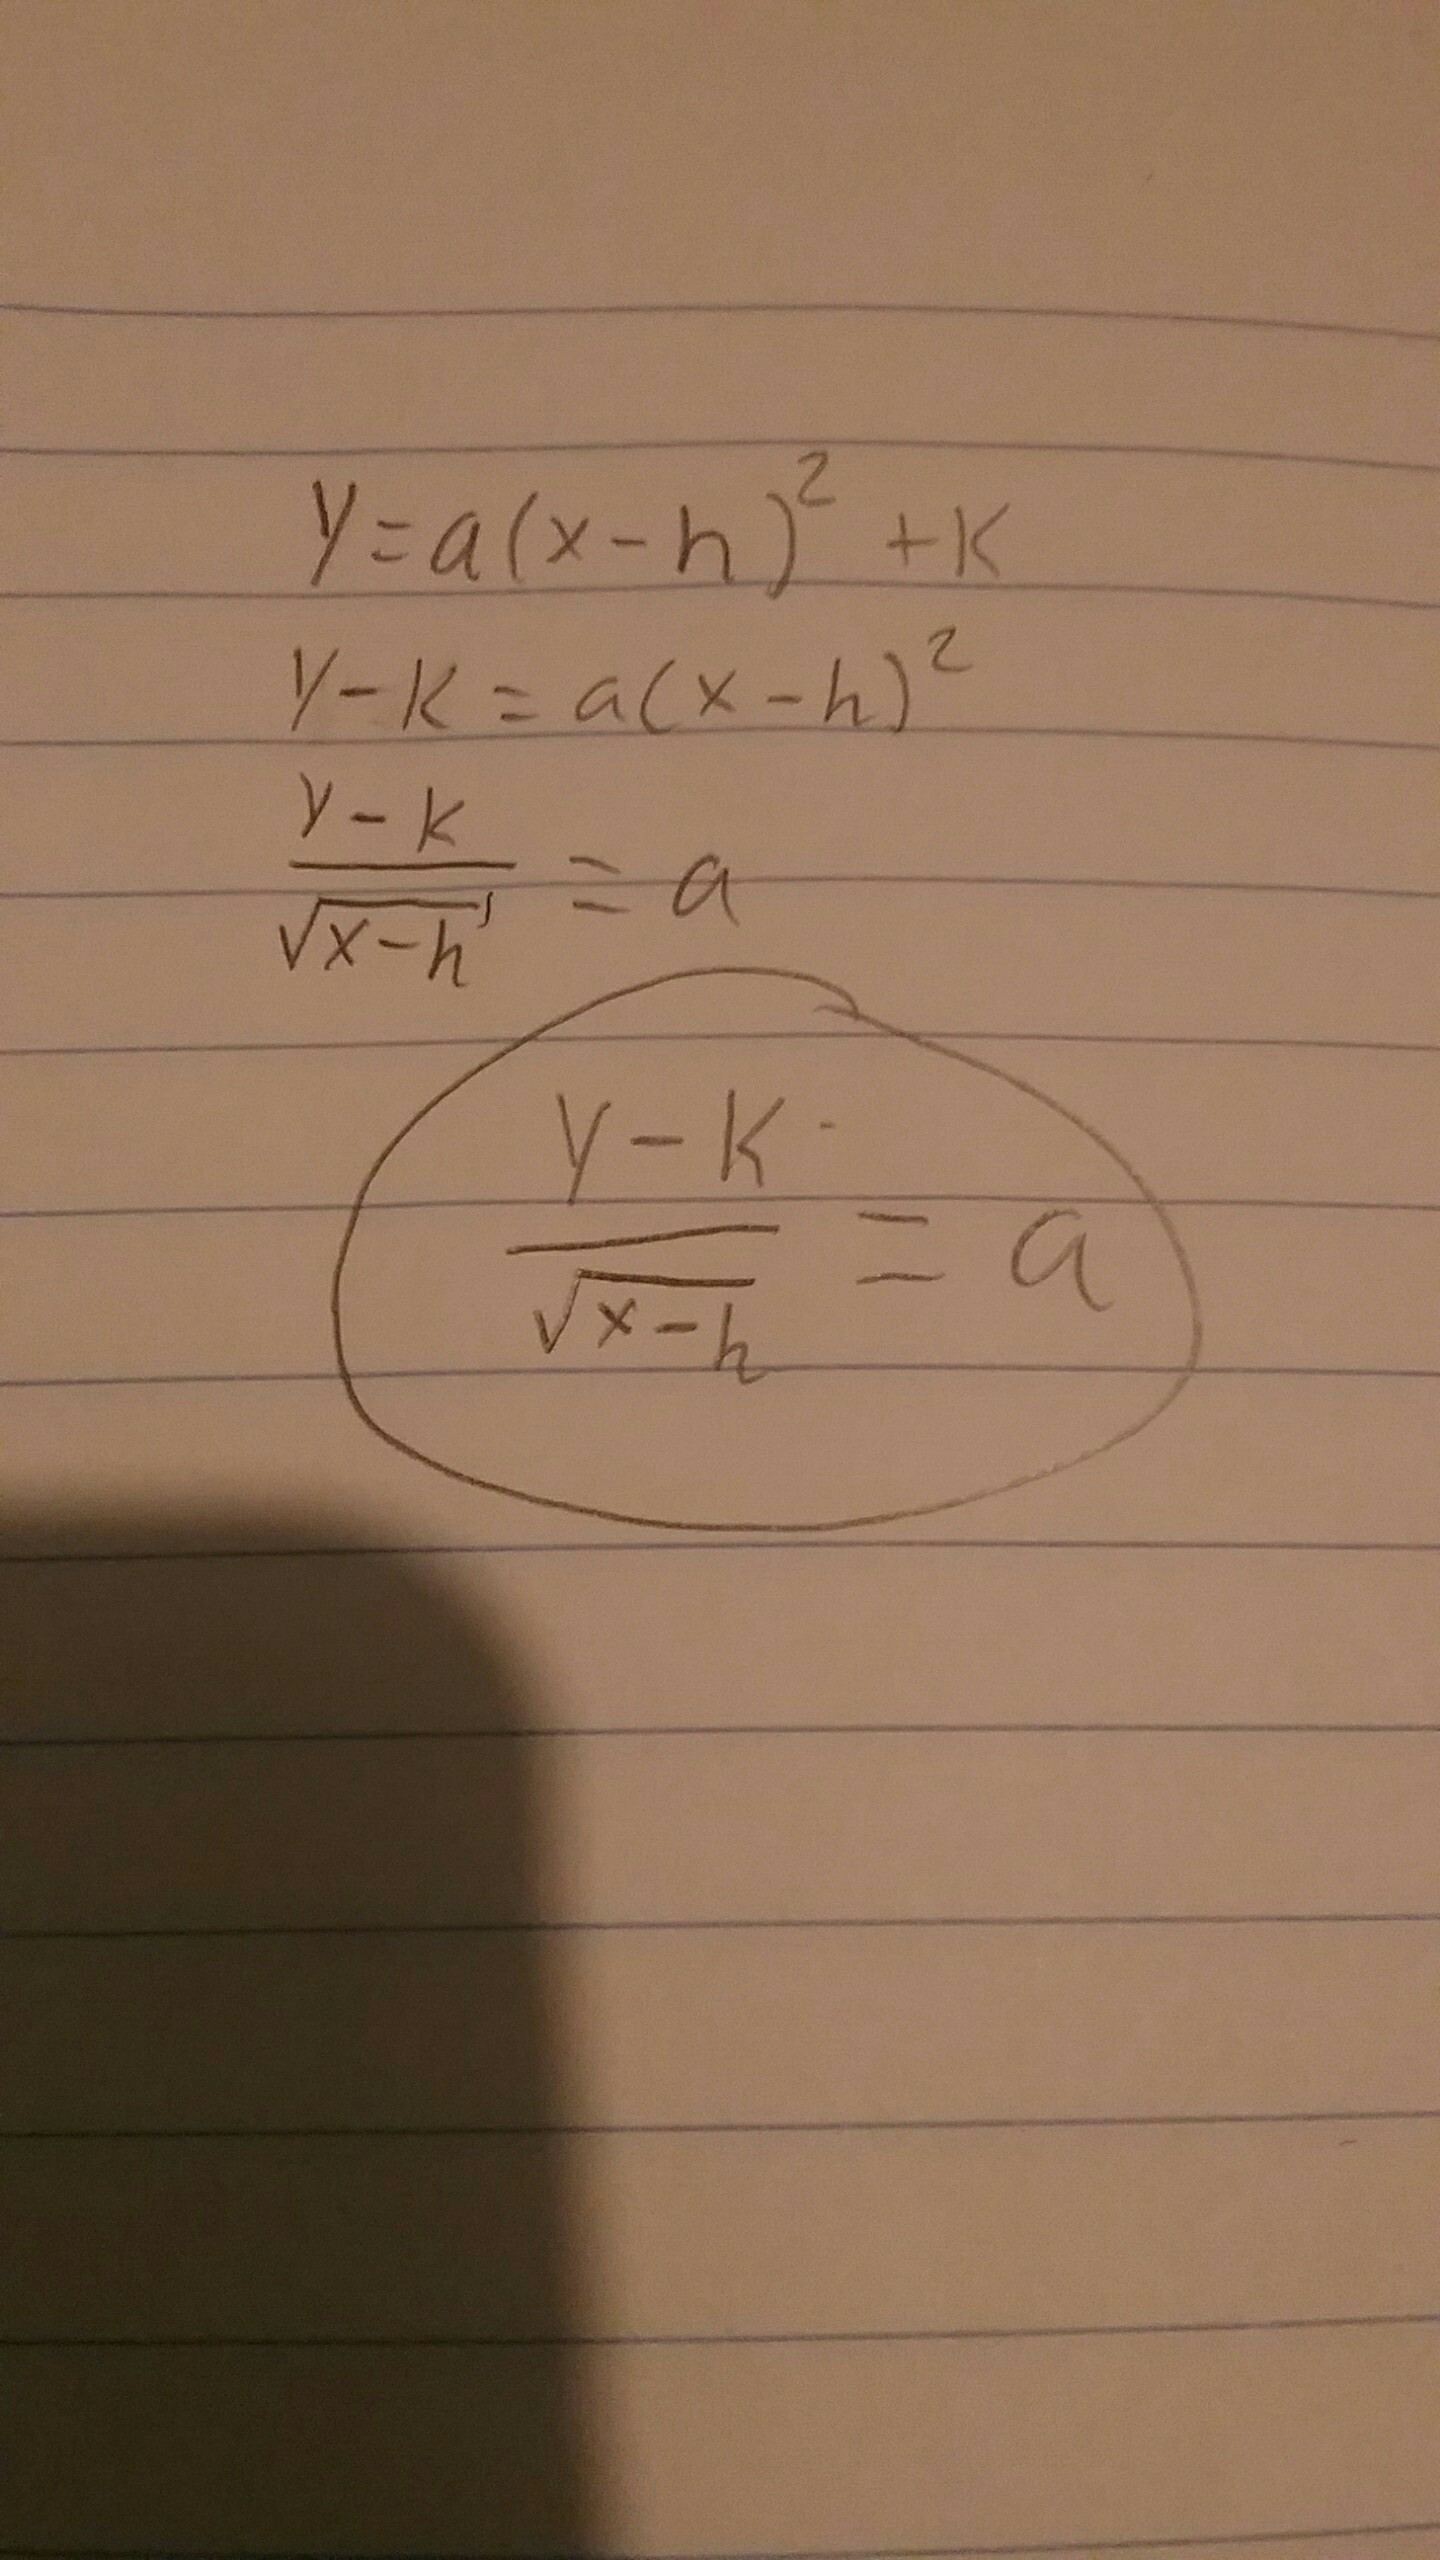 y = a(x - h)² + k
y - k = a(x - h)²
y - k / √x - h = a
y - k / √x - h = a